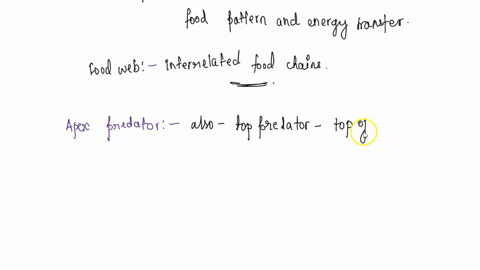 food pattern and energy transfer.
food web:- interrelated food chains.
Apex predator:- also - top predator - top of